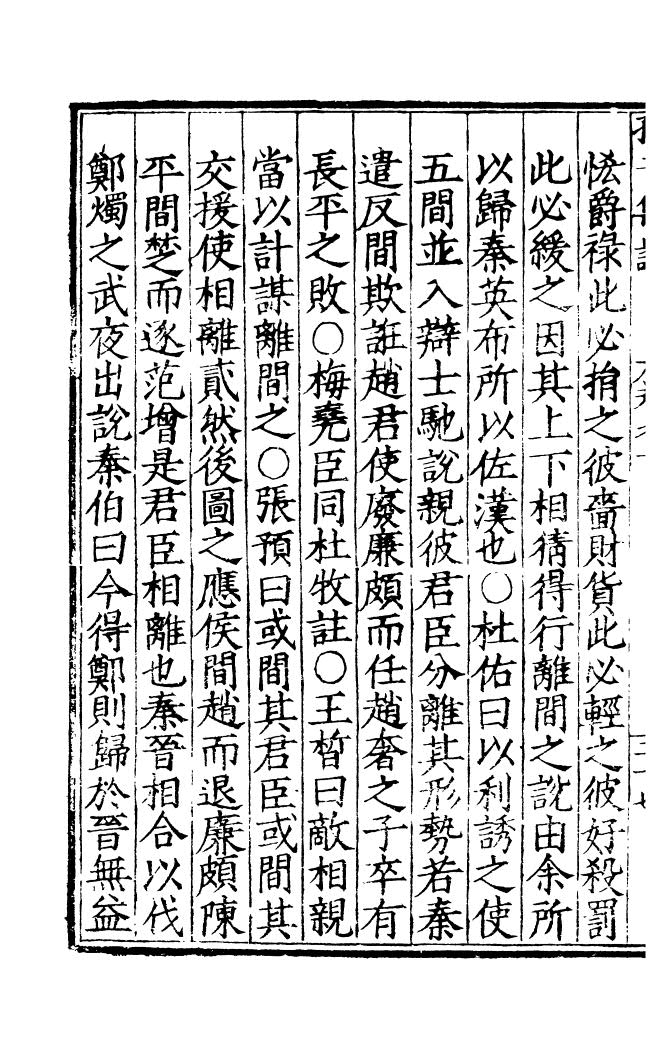 恡爵祿此必捎之彼嗇財貨此必輕之彼好殺罰
此必緩之因其上下相猜得行離間之說由余所
以歸秦英布所以佐漢也○杜佑曰以利誘之使
五間並入辯士馳說親彼君臣分離其形勢若秦
遣反間欺誑趙君使廢廉頗而任趙奢之子卒有
長平之敗○梅堯臣同杜牧註○王晳曰敵相親
當以計謀離間之○張預曰或間其君臣或間其
交援使相離貳然後圖之應侯間趙而退廉頗陳
平間楚而逐范增是君臣相離也秦晉相合以伐
鄭燭之武夜出說秦伯曰今得鄭則歸於晉無益